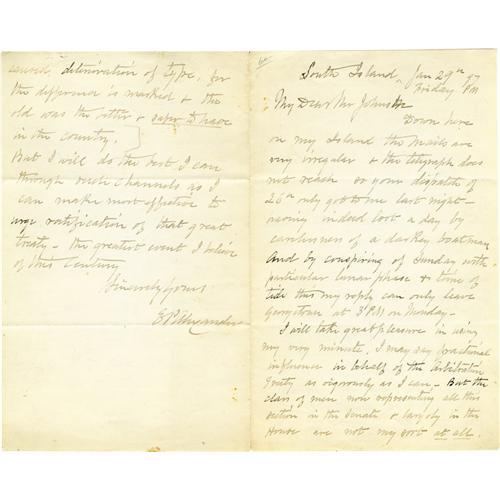 South Island, Jan 29th 97
Friday PM
My Dear Mr Johnston
Down here
on my Island the mails are
very irregular & the telegraph does
not reach so your dispatch of
26th only got to me last night —
having indeed lost a day by
carelessness of a darkey boatman
And by conspiring of Sunday with
particular lunar phase & time of
tide this my reply can only leave
Georgetown at 3 PM on Monday —
I will take great pleasure in using
my very minute, I may say fractional
influence in behalf of the Arbitration
Treaty as vigorously as I can — But the
class of men now representing all this
section in the Senate & largely in the
House are not my sort at all.
caused, deterioration of type, for
the difference is marked & the
old was the better & safer to have
in the country.
But I will do the best I can
through such channels as I
can make most effective to
urge ratification of that great
treaty — the greatest event I believe
of this century
Sincerely yours
E P Alexander